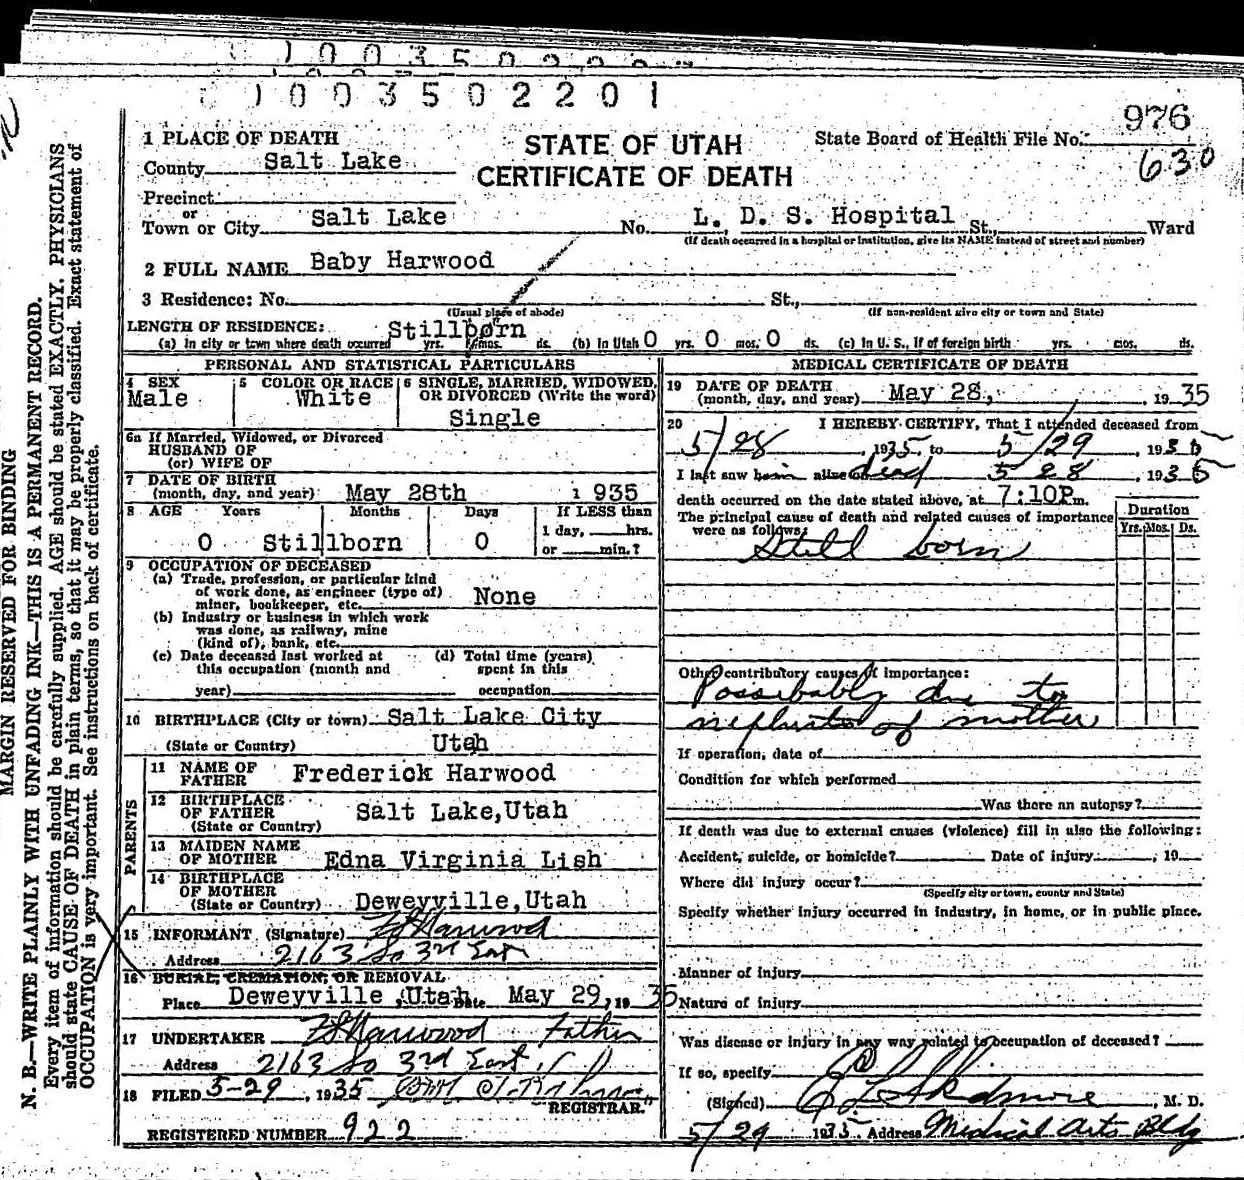 1003502201
976
630
1 PLACE OF DEATH
STATE OF UTAH
CERTIFICATE OF DEATH
State Board of Health File No.
County Salt Lake
Precinct
or
Town or City Salt Lake No. L. D. S. Hospital St., Ward
(If death occurred in a hospital or institution, give its NAME instead of street and number)
2 FULL NAME Baby Harwood
3 Residence: No. St.,
(Usual place of abode) (If non-resident give city or town and State)
LENGTH OF RESIDENCE: Stillborn
(a) In city or town where death occurred yrs. mos. ds. (b) In Utah 0 yrs. 0 mos. 0 ds. (c) In U. S., if of foreign birth yrs. mos. ds.
PERSONAL AND STATISTICAL PARTICULARS
4 SEX Male
5 COLOR OR RACE White
6 SINGLE, MARRIED, WIDOWED, OR DIVORCED (Write the word)
Single
6a If Married, Widowed, or Divorced
HUSBAND OF
(or) WIFE OF
7 DATE OF BIRTH
(month, day, and year) May 28th 1935
8 AGE Years Months Days If LESS than
0 Stillborn 0 1 day, hrs.
or min.?
9 OCCUPATION OF DECEASED
(a) Trade, profession, or particular kind
of work done, as engineer (type of)
miner, bookkeeper, etc. None
(b) Industry or business in which work
was done, as railway, mine
(kind of), bank, etc.
(c) Date deceased last worked at (d) Total time (years)
this occupation (month and spent in this
year) occupation
10 BIRTHPLACE (City or town) Salt Lake City
(State or Country) Utah
PARENTS
11 NAME OF
FATHER Frederick Harwood
12 BIRTHPLACE
OF FATHER Salt Lake,Utah
(State or Country)
13 MAIDEN NAME
OF MOTHER Edna Virginia Lish
14 BIRTHPLACE
OF MOTHER
(State or Country) Deweyville,Utah
15 INFORMANT (Signature) Harwood
Address 2163 So 3rd East
16 BURIAL, CREMATION, OR REMOVAL
Place Deweyville ,Utah Date May 29, 19 35
17 UNDERTAKER Harwood Father
Address 2163 So 3rd East
18 FILED 5-29, 1935
REGISTRAR.
REGISTERED NUMBER 922
MEDICAL CERTIFICATE OF DEATH
19 DATE OF DEATH
(month, day, and year) May 28, , 19 35
20 I HEREBY CERTIFY, That I attended deceased from
5/28, 1935, to 5/29, 1935
I last saw him alive on dead 5 28, 1935
death occurred on the date stated above, at 7:10P m.
The principal cause of death and related causes of importance
were as follows:
Still born
Duration
Yrs. Mos. Ds.
Other contributory causes of importance:
Possibably due to
nephritis of mother
If operation, date of
Condition for which performed
Was there an autopsy?
If death was due to external causes (violence) fill in also the following:
Accident, suicide, or homicide? Date of injury , 19
Where did injury occur?
(Specify city or town, county and State)
Specify whether injury occurred in industry, in home, or in public place.
Manner of injury
Nature of injury
Was disease or injury in any way related to occupation of deceased?
If so, specify
(Signed) Skidmore, M. D.
5/29 1935. Address Medical Arts Bldg
MARGIN RESERVED FOR BINDING
N. B.—WRITE PLAINLY WITH UNFADING INK—THIS IS A PERMANENT RECORD.
Every item of information should be carefully supplied. AGE should be stated EXACTLY. PHYSICIANS
should state CAUSE OF DEATH in plain terms, so that it may be properly classified. Exact statement of
OCCUPATION is very important. See instructions on back of certificate.